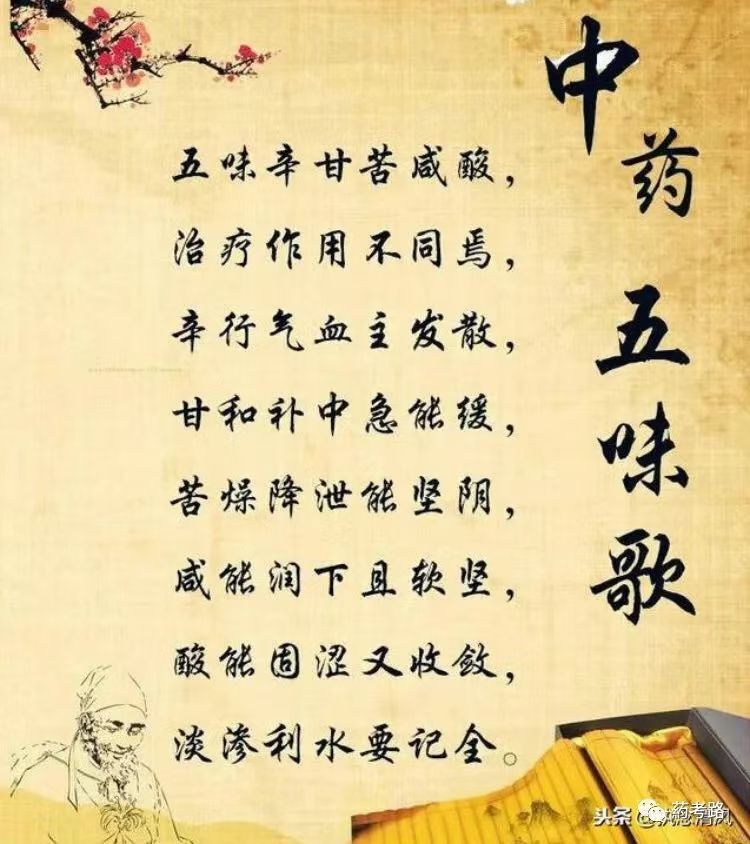 中药五味歌
五味辛甘苦咸酸，
治疗作用不同焉，
辛行气血主发散，
甘和补中急能缓，
苦燥降泄能坚阴，
咸能润下且软坚，
酸能固涩又收敛，
淡渗利水要记全。
头条
药考路